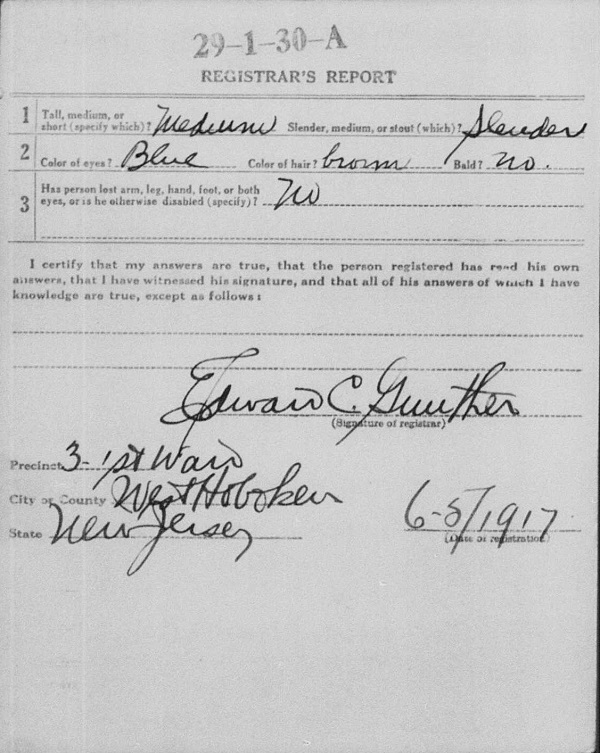 29-1-30-A
REGISTRAR'S REPORT
1 Tall, medium, or short (specify which)? Medium Slender, medium, or stout (which)? Slender
2 Color of eyes? Blue Color of hair? brown Bald? No.
3 Has person lost arm, leg, hand, foot, or both eyes, or is he otherwise disabled (specify)? No
I certify that my answers are true, that the person registered has read his own
answers, that I have witnessed his signature, and that all of his answers of which I have
knowledge are true, except as follows:
Edward C. Gunther
(Signature of registrar)
Precinct 3-1st Ward
City or County West Hoboken
State New Jersey
6-5/1917
(Date of registration)